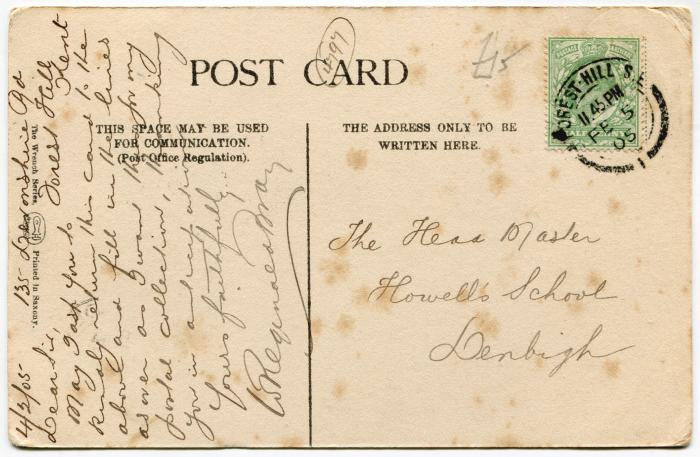 POST CARD
4797
£15
THIS SPACE MAY BE USED
FOR COMMUNICATION.
(Post Office Regulation).
THE ADDRESS ONLY TO BE
WRITTEN HERE.
FOREST-HILL S.E.
11.45 PM
FE 5
05
1
The Head Master
Howells School
Denbigh
The Wrench Series.
Printed in Saxony.
135 Devonshire Rd
Forest Hill
Kent
4/2/05
Dear Sir,
May I ask you to
kindly return this card to the
above and fill in the lines
as over as I want this for my
postal collection, thanking
you in anticipation
Yours faithfully
W Reginald Bray